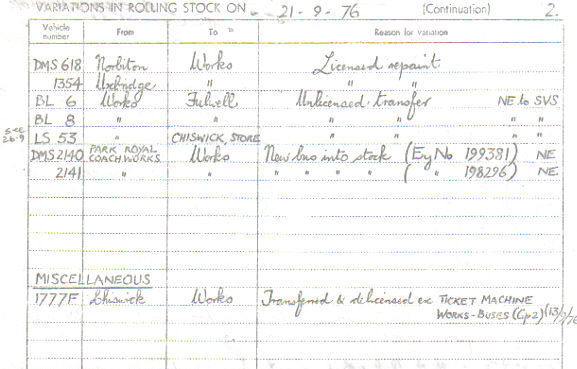 VARIATIONS IN ROLLING STOCK ON 21-9-76 (Continuation) 2.
Vehicle number From To Reason for variation
DMS 618 Norbiton Works Licensed repaint
1354 Uxbridge " " "
BL 6 Works Fulwell Unlicensed transfer NE to SVS
BL 8 " " " " " "
see 26.9 LS 53 " CHISWICK, STORE " " " "
DMS 2140 PARK ROYAL COACHWORKS Works New bus into stock (Ey No 199381) NE
2141 " " " " " " " ( " 198296) NE
MISCELLANEOUS
1777F Chiswick Works Transferred & delicensed ex TICKET MACHINE
WORKS-BUSES (Gp2) (13/9/76